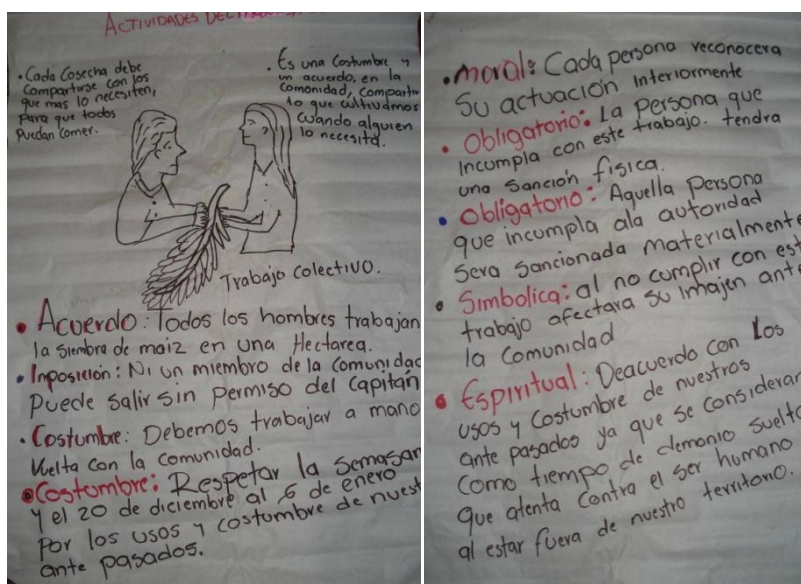 ACTIVIDADES DEL
• Cada Cosecha debe
Compartirse con los
que mas lo necesiten,
Para que todos
Puedan Comer.
• Es una Costumbre y
un acuerdo, en la
Comonidad, compartir
lo que cultivamos
Cuando alguien
lo necesita.
Trabajo Colectivo.
• Acuerdo: Todos los hombres trabajan
la siembra de maiz en una Hectarea.
• Inposición: Ni un miembro de la comunidad
Puede Salir sin Permiso del Capitán
• Costumbre: Debemos trabajar a mano
Vuelta con la comunidad.
• Costumbre: Respetar la Semasan
y el 20 de diciembre al 6 de enero
Por los usos y costumbre de nuest
ante pasados.
• moral: Cada persona reconocera
Su actuación interiormente
• Obligatorio: La Persona que
incumpla con este trabajo. tendra
una Sanción física.
• Obligatorio: Aquella Persona
que incumpla ala autoridad
Sera Sancionada materialmente
• Simbolica: al no cumplir con est
trabajo afectara su imajen ante
la Comunidad
• Espiritual: Deacuerdo con Los
usos y Costumbre de nuestros
ante pasados ya que se consideran
Como tiempo de demonio suelto
que atenta Contra el ser humano
al estar fuera de nuestro territorio.